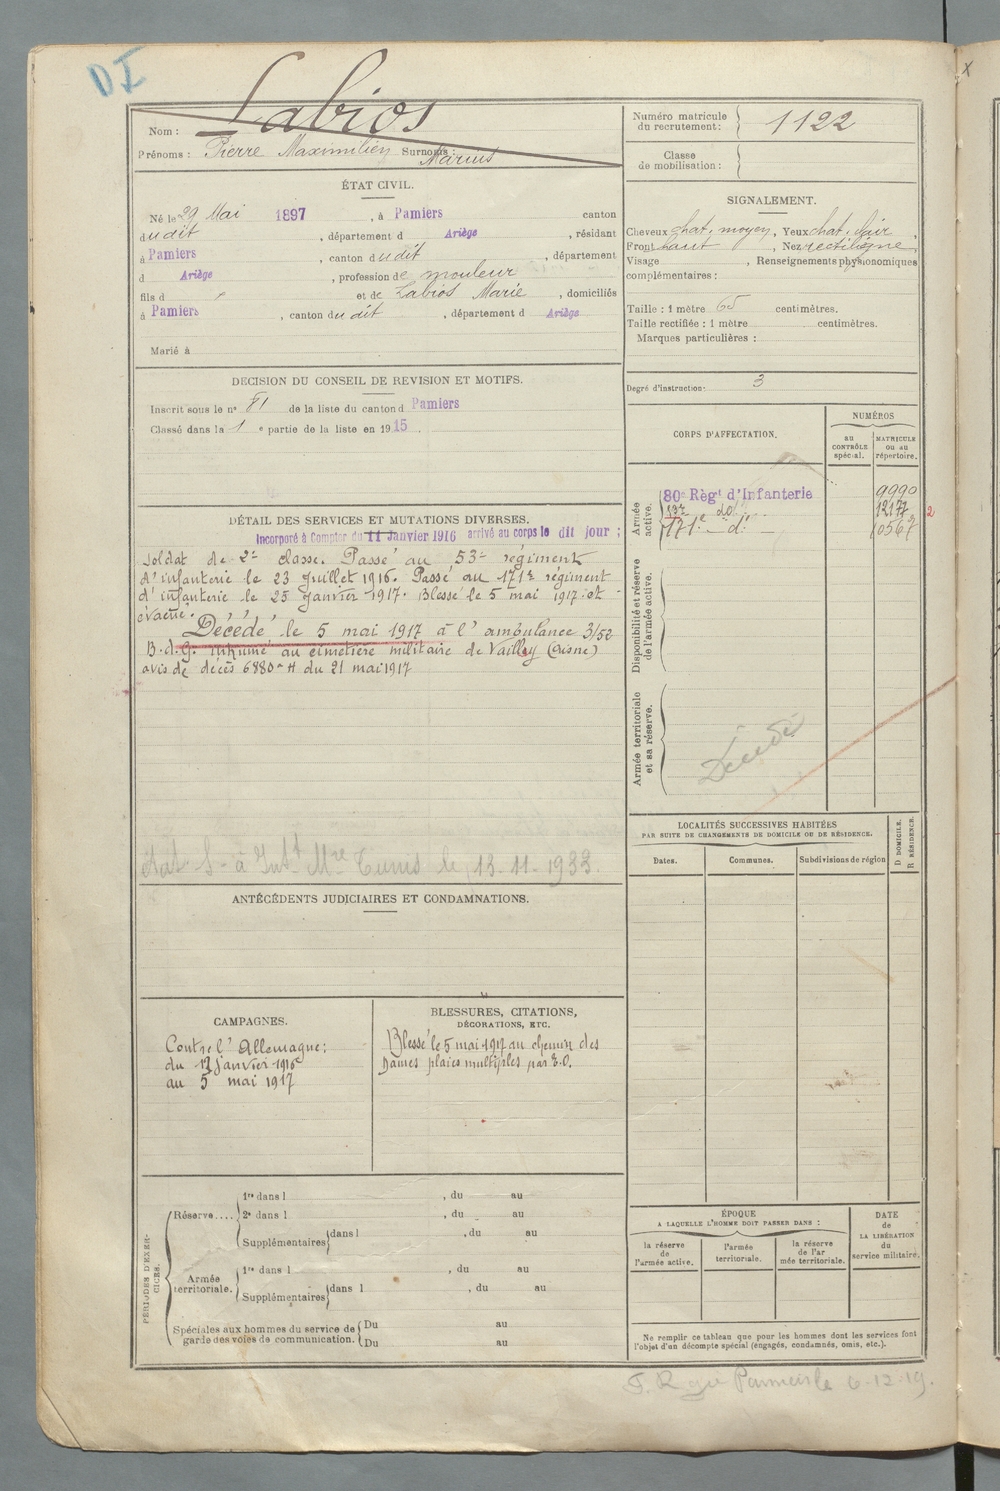 DI
Nom : Labios
Prénoms : Pierre Maximilien Surnoms : Marius
ÉTAT CIVIL.
Né le 29 Mai 1897, à Pamiers canton
dudit, département d Ariège, résidant
à Pamiers, canton dudit, département
d Ariège, profession de mouleur
fils d et de Labios Marie, domiciliés
à Pamiers, canton dudit, département d Ariège
Marié à
DECISION DU CONSEIL DE REVISION ET MOTIFS.
Inscrit sous le n° 81 de la liste du canton d Pamiers
Classé dans la 1 e partie de la liste en 1915.
DÉTAIL DES SERVICES ET MUTATIONS DIVERSES.
Incorporé à Compter du 11 Janvier 1916 arrivé au corps le dit jour ;
soldat de 2e classe. Passé au 53e régiment
d'infanterie le 23 juillet 1916. Passé au 171e régiment
d'infanterie le 25 janvier 1917. Blessé le 5 mai 1917 et
évacué.
Décédé le 5 mai 1917 à l'ambulance 3/52
B.d.G. inhumé au cimetière militaire de Vailly (Aisne)
avis de décès 6880-H du 21 mai 1917
Tunis le 13.11.1933.
ANTÉCÉDENTS JUDICIAIRES ET CONDAMNATIONS.
CAMPAGNES.
Contre l'Allemagne:
du 12 janvier 1916
au 5 mai 1917
BLESSURES, CITATIONS,
DÉCORATIONS, ETC.
Blessé le 5 mai 1917 au chemin des
Dames plaies multiples par E.O.
PÉRIODES D'EXERCICES.
Réserve....
1re dans l , du au
2e dans l , du au
Supplémentaires dans l , du au
Armée territoriale.
1re dans l , du au
Supplémentaires dans l , du au
Spéciales aux hommes du service de garde des voies de communication.
Du au
Du au
Numéro matricule
du recrutement: 1122
Classe
de mobilisation :
SIGNALEMENT.
Cheveux chat. moyen, Yeux chat. clair
Front haut, Nez rectiligne
Visage , Renseignements physionomiques
complémentaires :
Taille : 1 mètre 65 centimètres.
Taille rectifiée : 1 mètre centimètres.
Marques particulières :
Degré d'instruction: 3
CORPS D'AFFECTATION.
NUMÉROS
au
CONTRÔLE
spécial.
MATRICULE
ou au
répertoire.
Armée
active.
80e Règt d'Infanterie 9990
do 12177 2
171e d° 10567
Disponibilité et réserve
de l'armée active.
Armée territoriale
et sa réserve.
Décédé
LOCALITÉS SUCCESSIVES HABITÉES
PAR SUITE DE CHANGEMENTS DE DOMICILE OU DE RÉSIDENCE.
Dates.
Communes.
Subdivisions de région
D DOMICILE.
R RÉSIDENCE.
ÉPOQUE
A LAQUELLE L'HOMME DOIT PASSER DANS :
la réserve
de
l'armée active.
l'armée
territoriale.
la réserve
de l'ar
mée territoriale.
DATE
de
LA LIBÉRATION
du
service militaire.
Ne remplir ce tableau que pour les hommes dont les services font
l'objet d'un décompte spécial (engagés, condamnés, omis, etc.).
6-12-19.